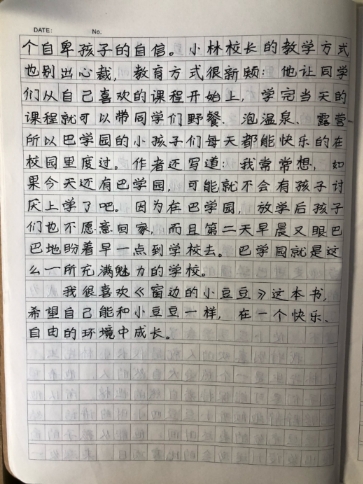 DATE: No.
个自卑孩子的自信。小林校长的教学方式
也别出心裁，教育方式很新颖：他让同学
们从自己喜欢的课程开始上，学完当天的
课程就可以带同学们野餐、泡温泉、露营…
所以巴学园的小孩子们每天都能快乐的在
校园里度过。作者还写道：我常常想，如
果今天还有巴学园，可能就不会有孩子讨
厌上学了吧。因为在巴学园，放学后孩子
们也不愿意回家，而且第二天早晨又眼巴
巴地盼着早一点到学校去。巴学园就是这
么一所充满魅力的学校。
我很喜欢《窗边的小豆豆》这本书，
希望自己能和小豆豆一样，在一个快乐、
自由的环境中成长。